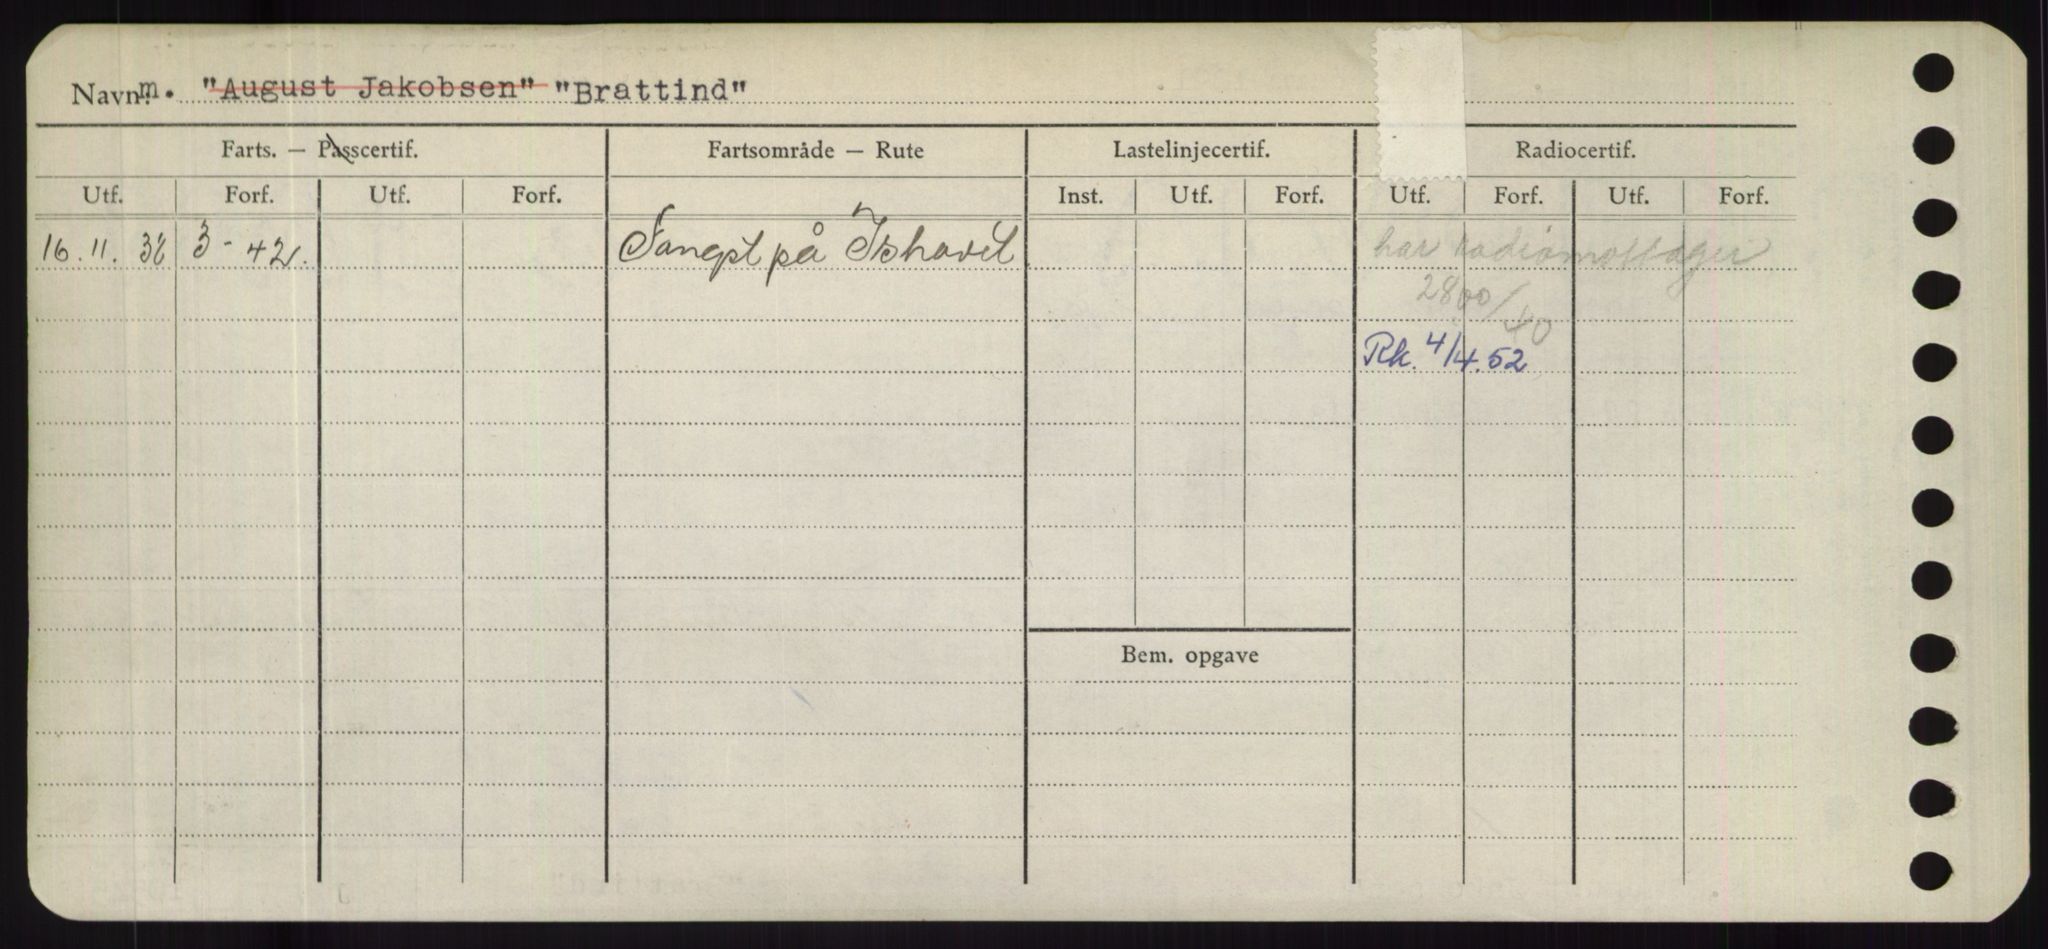 Navn: m. "August Jakobsen" "Brattind"
Farts. — Passcertif. Fartsområde — Rute Lastelinjecertif. Radiocertif.
Utf. Forf. Utf. Forf. Inst. Utf. Forf. Utf. Forf. Utf. Forf.
16.11.38 3 - 42. Fangst på Ishavet har radiomottager
2800/40
Rk. 4/4.52
Bem. opgave